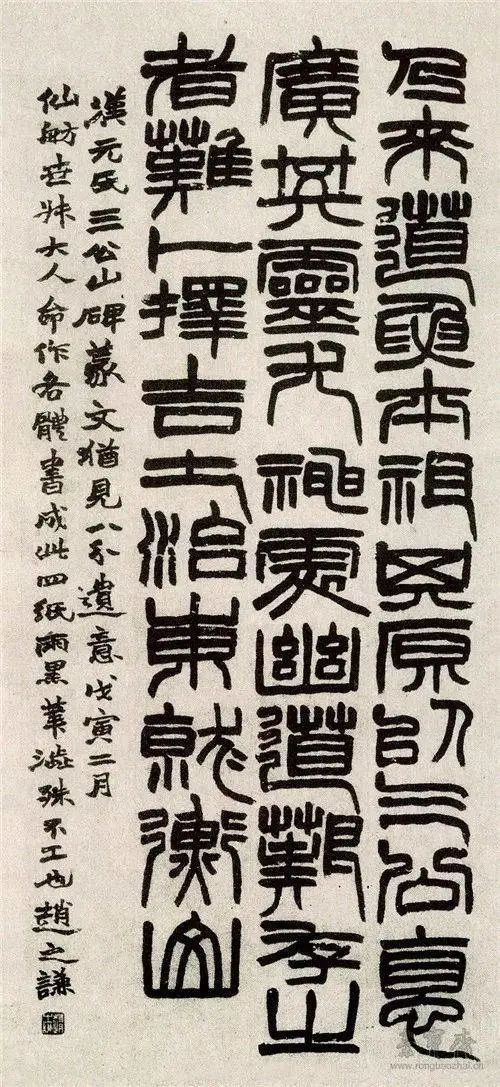 乃來道要本祖其原以三公悳
廣其靈尤神處幽道艱存之
者難卜擇吉土治東就衡山
漢元氏三公山碑篆文猶見八分遺意戊寅二月
仙舫世叔大人命作各體書成此四紙筆澁殊不工也趙之謙
荣宝斋
www.rongbaozhai.cn